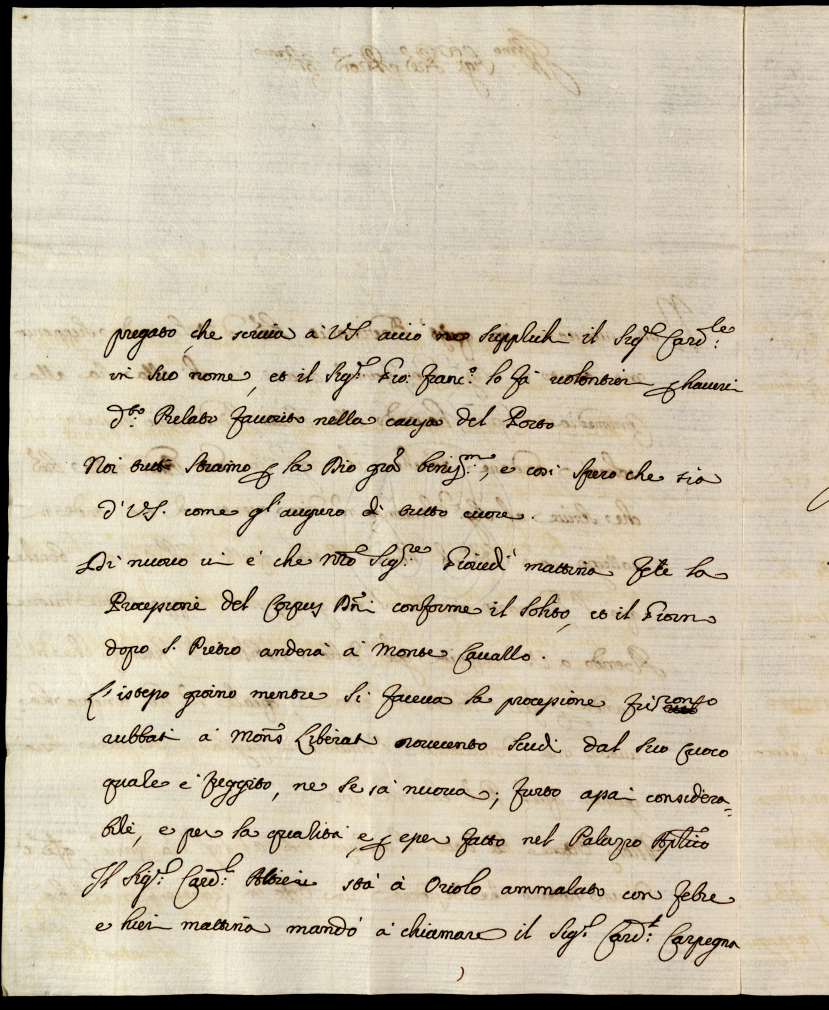 pregato che scriva à V.S. acciò supplichi il Sig.r Card.le
in suo nome, et il Sig.r Gio: Franc.o lo fà volontieri haveri
d.to Prelato favorito nella causa del Porto
Noi tutti stiamo la Dio gra benis.mo, e così spero che sia
di V.S. come gl'auguro di tutto cuore.
Di nuovo vi è che nro Sig.re Giovedì mattina fece la
Processione del Corpus Dni conforme il solito, et il Giorno
dopo S. Pietro anderà à Monte Cavallo.
L'istesso giorno mentre si faceva la processione furono
rubbati à Mons Liberati novecento scudi dal suo cuoco
quale è fuggito, ne se sà nuova; furto assai considera=
bile, e per la qualità, e esser fatto nel Palazzo Aplico
Il Sig.r Card.l Altieri stà à Oriolo ammalato con febre
e hieri mattina mandò à chiamare il Sig.r Card.l Carpegna